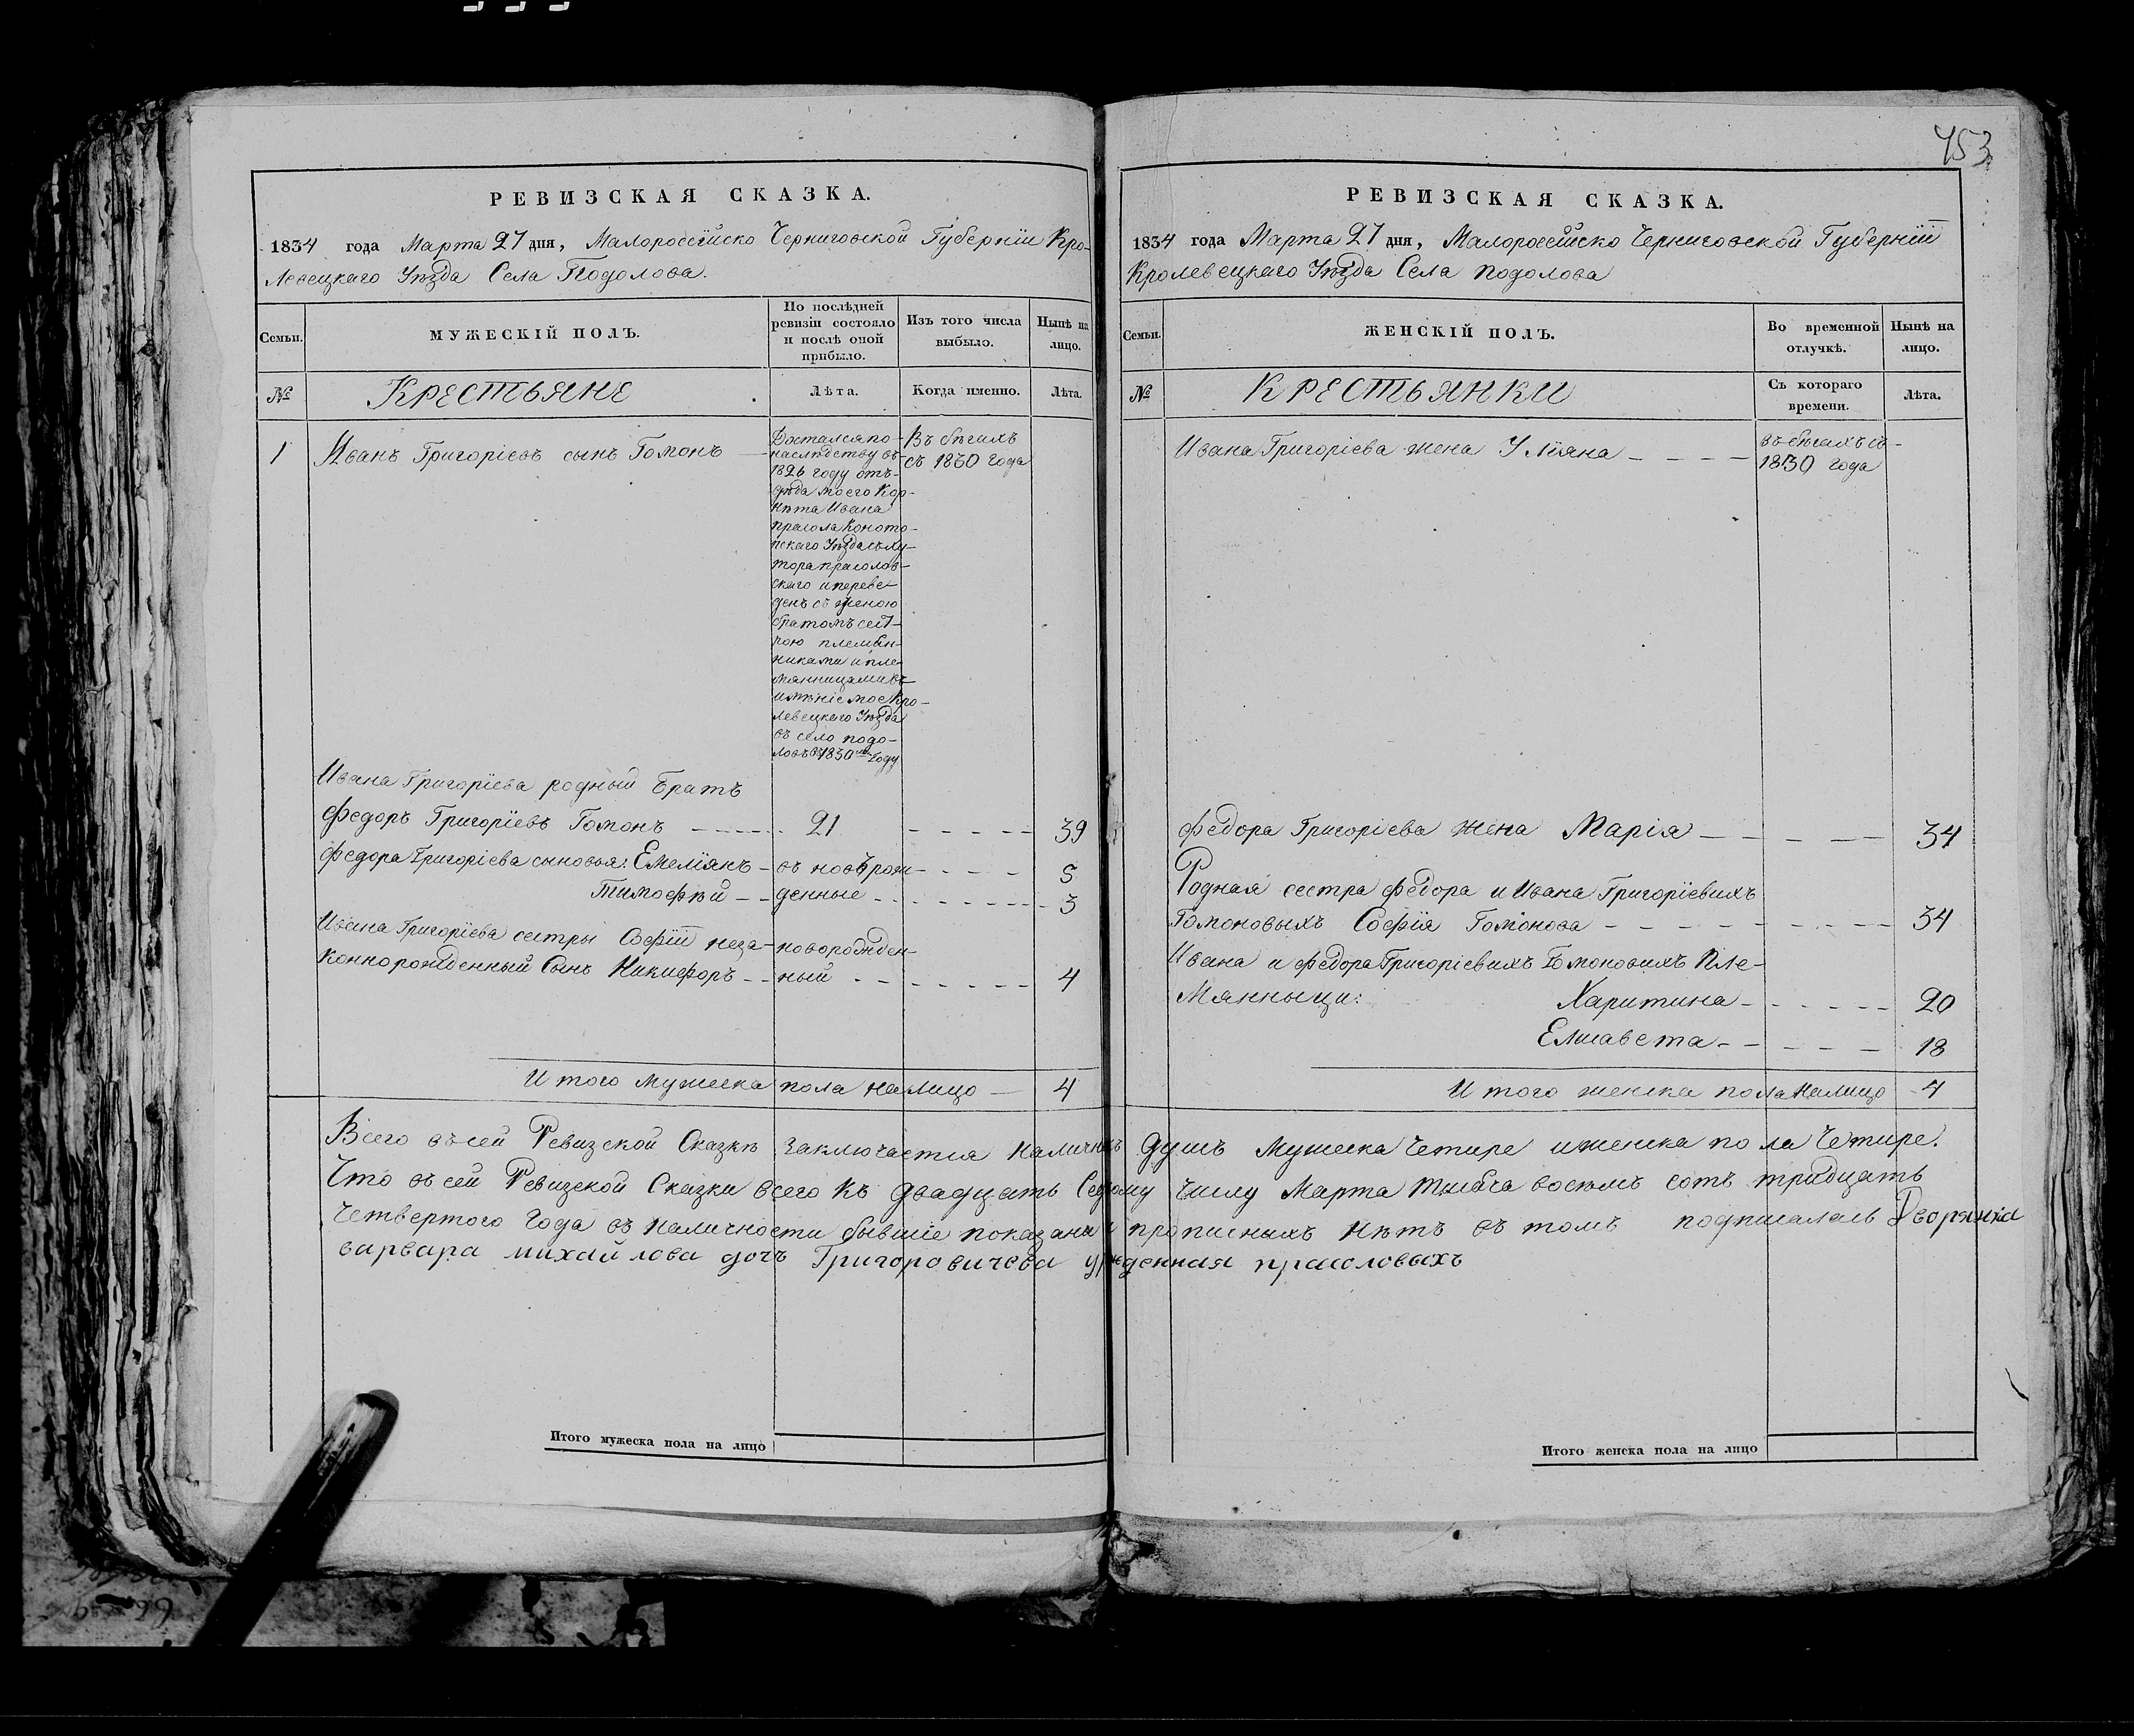 453
РЕВИЗСКАЯ СКАЗКА.
1834 года Марта 27 дня, Малороссійско Черниговской Губерніи Кро-
левецкаго Уѣзда Села Подолова.
Семьи.
МУЖЕСКІЙ ПОЛЪ.
По послѣдней
ревизіи состояло
и послѣ оной
прибыло.
Изъ того числа
выбыло.
Нынѣ на
лицо.
№
Крестьяне
Лѣта.
Когда именно.
Лѣта.
1 Иванъ Григоріевъ сынъ Гомонъ
Достался по-
наслѣдству въ
1826 году отъ-
дѣда моего Кор-
нѣта Ивана
прасола Коното-
пскаго Уѣзда съ ху-
тора прасолов-
скаго и переве-
денъ съ женою
братомъ сест-
рою племян-
никами и пле-
мянницами въ
имѣніе мое Кро-
левецкаго Уѣзда
въ село подо-
ловъ въ 1830мъ году
Въ бѣгахъ
съ 1830 года
Ивана Григоріева родный братъ
Федоръ Григоріевъ Гомонъ - - - - - 21 - - - - - 39
Федора Григоріева сыновья: Емеліянъ - въ новѣ рож- - - - - 5
Тимофѣй - - денные - - - - - - 3
Ивана Григоріева сестры Софіи неза- новорожден-
коннорожденный Сынъ Никифоръ - - ный - - - - - - 4
И того мужеска пола на лицо — 4
РЕВИЗСКАЯ СКАЗКА.
1834 года Марта 27 дня, Малороссійско Черниговской Губерніи
Кролевецкаго Уѣзда Села подолова
Семьи.
ЖЕНСКІЙ ПОЛЪ.
Во временной
отлучкѣ.
Нынѣ на
лицо.
№
Крестьянки
Съ котораго
времени.
Лѣта.
Ивана Григоріева жена Уліяна - - - -
въ бѣгахъ съ-
1830 года
Федора Григоріева жена Марія - - - - - 34
Родная сестра Федора и Ивана Григоріевихъ
Гомоновыхъ Софія Гомонова - - - - - - - - 34
Ивана и Федора Григоріевихъ Гомоновихъ Пле-
мянныци: Харитина - - - - - 20
Елисавета - - - - - 18
И того женска пола на лицо - 4
Всего въ сей Ревизской Сказкѣ заключается наличныхъ душъ мужеска Четире и женска пола Четире.
Что въ сей Ревизской Сказки всего къ двадцать Седмому числу Марта тисяча восемъ сотъ тридцать
Четвертого Года въ наличности бывшіе показани и прописныхъ нѣтъ въ томъ подписалась Дворянка
варвара михайлова дочъ Григоровичева урожденная прасоловыхъ
Итого мужеска пола на лицо
Итого женска пола на лицо